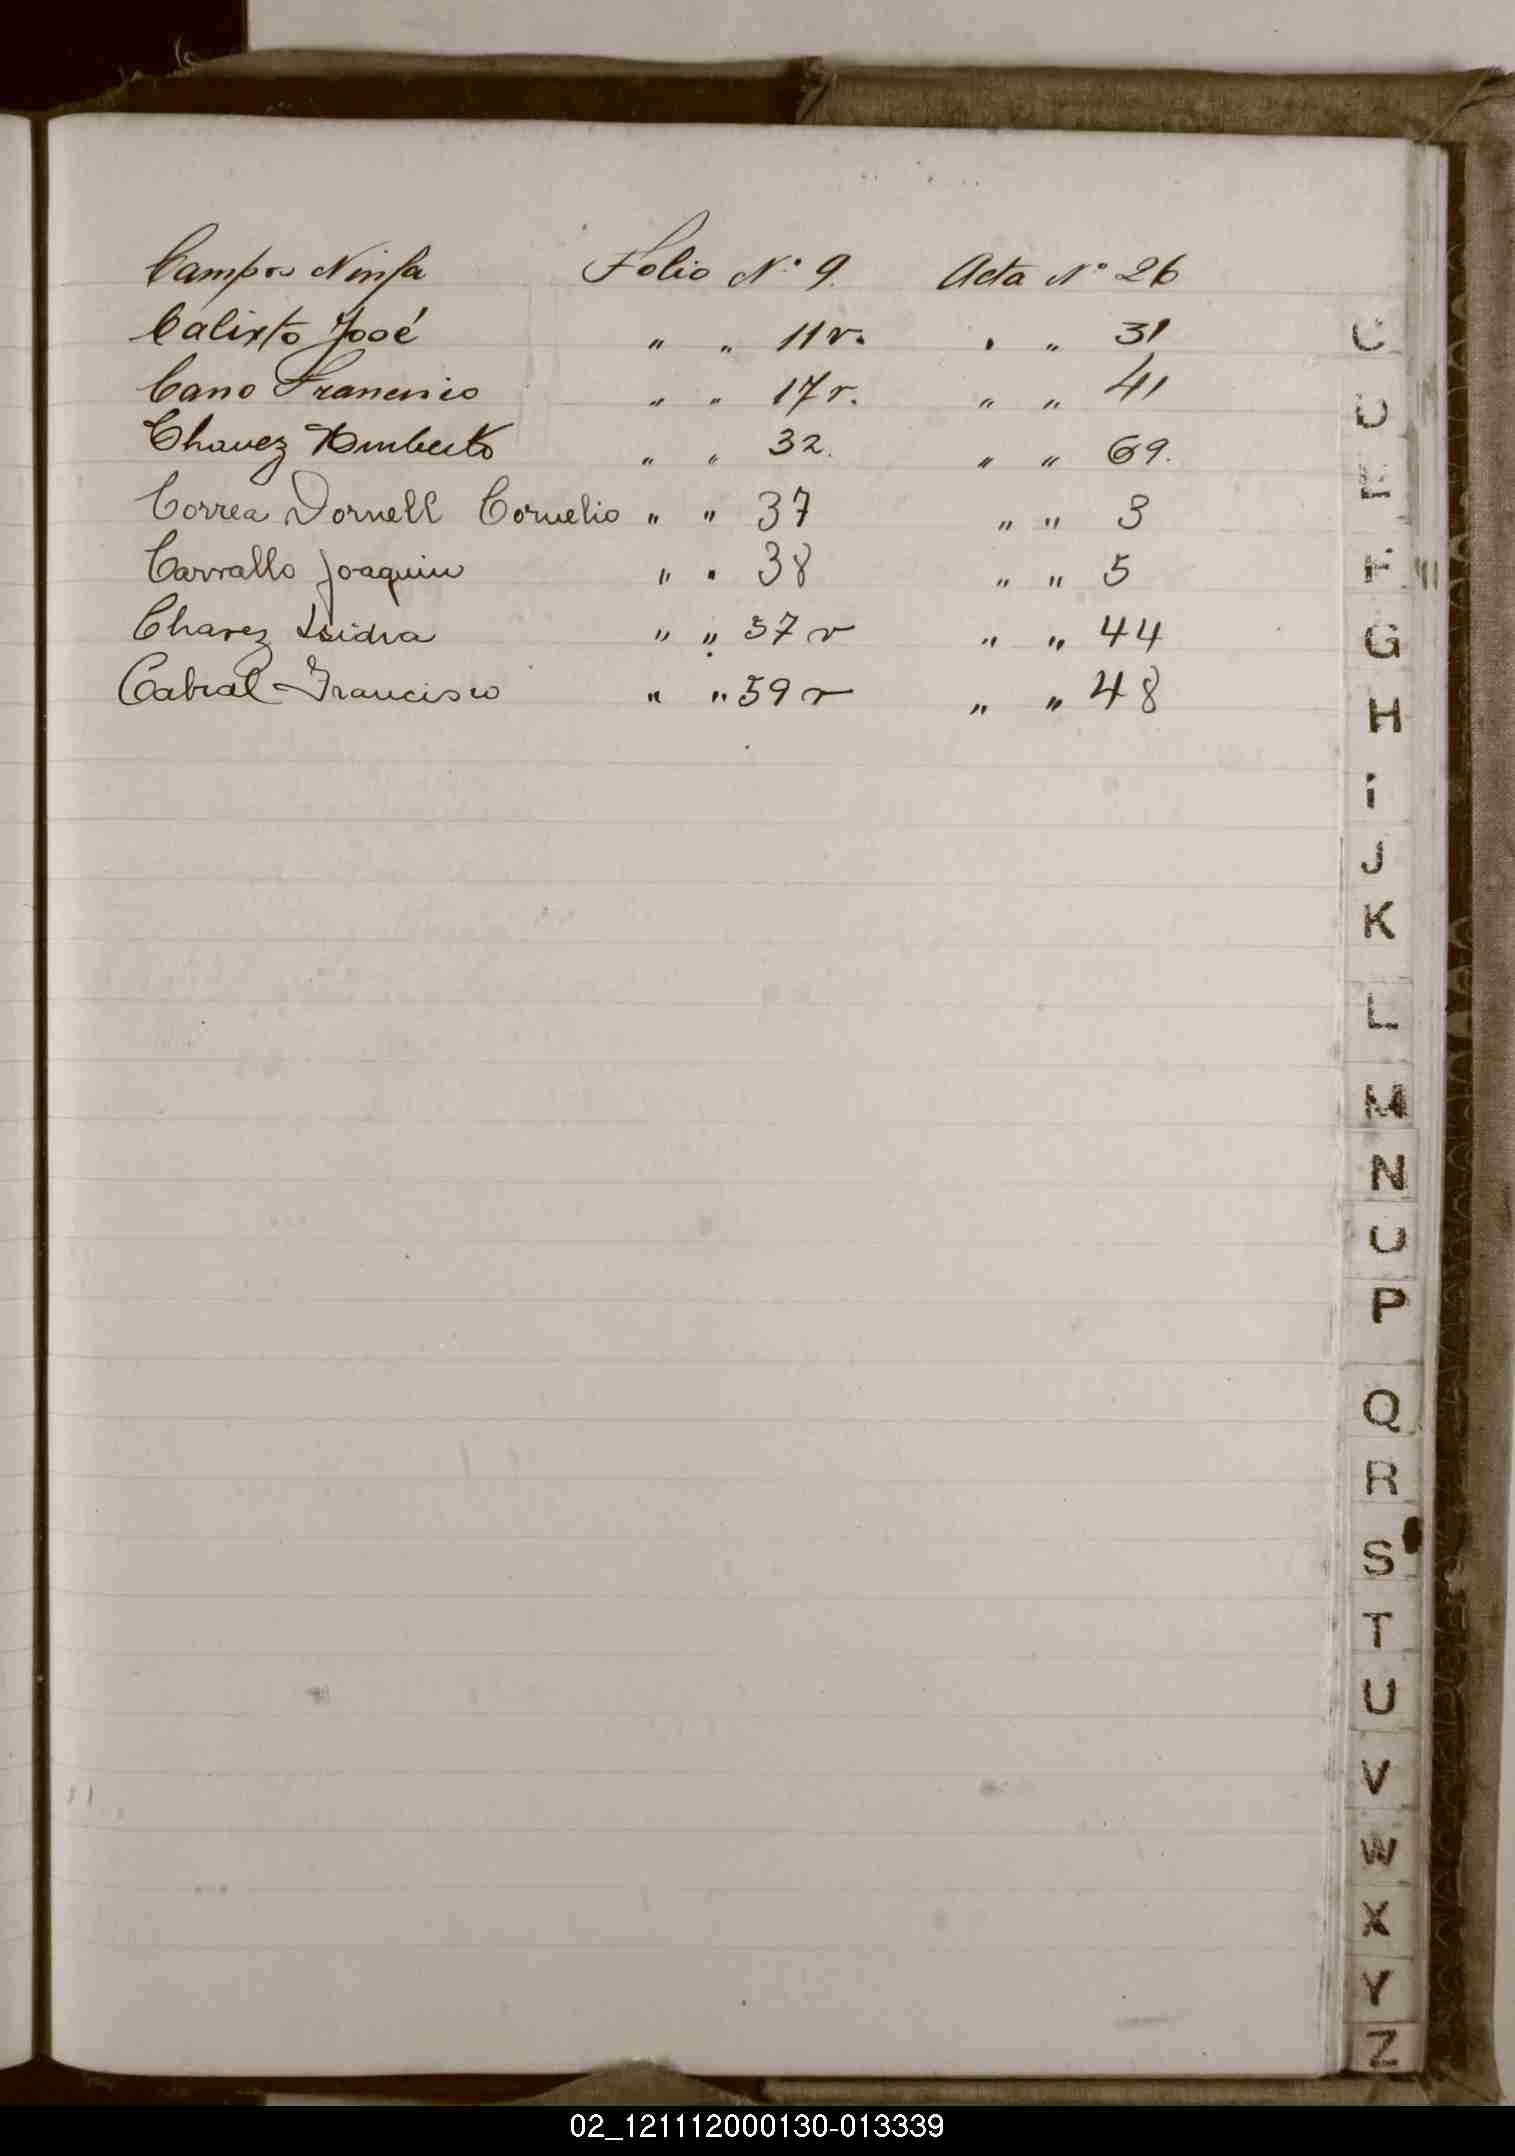 Campos Ninfa Folio N° 9. Acta N° 26
Calixto José " " 11 v. " " 31
Cano Francisco " " 17 v. " " 41
Chavez Humberto " " 32. " " 69.
Correa Dornell Cornelio " " 37 " " 3
Carvallo Joaquin " " 38 " " 5
Chavez Isidra " " 57 v " " 44
Cabral Francisco " " 59 v " " 48
C
D
E
F
G
H
i
J
K
L
M
N
O
P
Q
R
S
T
U
V
W
X
Y
Z
02_121112000130-013339